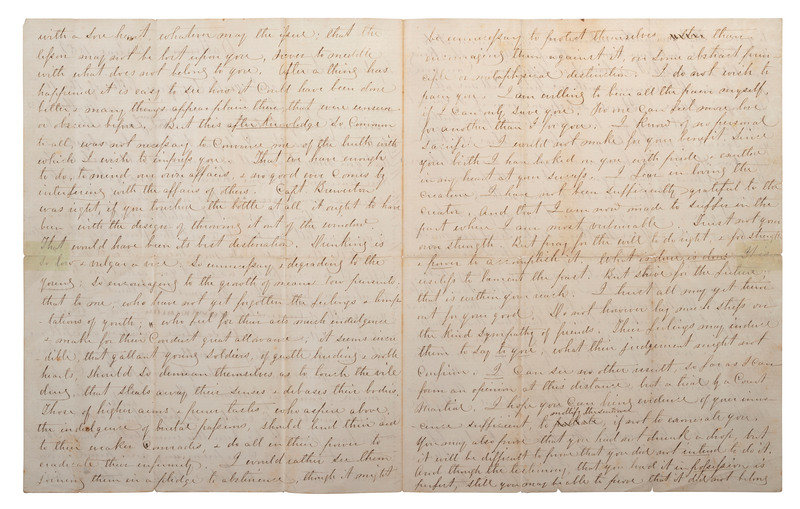 with a sore heart, whatever may the issue; that the
lesson may not be lost upon you, never to meddle
with what does not belong to you. After a thing has
happened it is easy to see how it could have been done
better & many things appear plain then that were unseen
or obscure before. But this after knowledge so common
to all, was not necessary to convince me of the truth with
which I wish to impress you. That we have enough
to do, to mend our own affairs, & no good ever comes by
interfering with the affairs of others. Capt Brewerton
was right, if you touched the bottle at all it ought to have
been with the design of throwing it out of the window
That would have been its best destination. Drinking is
so low & vulgar a vice. So unnecessary & degrading to the
young. So encouraging to the growth of means low pursuits.
that to me, who have not yet forgotten the feelings & temp
-tations of youth; & who feel for their acts much indulgence
& make for their conduct great allowance; it seems incre
dible, that gallant young soldiers, of gentle breeding & noble
hearts, should so demean themselves as to touch the vile
thing, that steals away their senses & debases their bodies.
Those of higher aims & purer tastes who aspire above
the indulgence of brutal passions, should lend their aid
to their weaker comrades, & do all in their power to
eradicate their infirmity. I would rather see them
joining them in a pledge to abstinence, though it might
be unnecessary to protect themselves, than
encouraging them against it, on some abstract prin
ciple or metaphysical distinction. I do not wish to
pain you. I am willing to bear all the pain myself,
if I can only save you. No one can feel more love
for another than I for you. I know of no personal
sacrifice I would not make for your benefit. Since
your birth I have looked on you with pride & exulted
in my heart at your success. I fear in loving the
creature, I have not been sufficiently grateful to the
Creator. And that I am now made to suffer in the
part where I am most vulnerable. Trust not your
own strength. But pray for the will to do right, & for strength
& power to accomplish it. What is done is done. It is
useless to lament the past. But strive for the future,
that is within your reach. I trust all may yet turn
out for your good. Do not however lay much stress on
the kind sympathy of friends. Their feelings may induce
them to say to you, what their judgement might not
confirm. I can see no other result, so far as I can
form an opinion at this distance, but a trial by a Court
Martial. I hope you can bring evidence of your inno
cence sufficient to, if not to exonerate you.
You may also prove that you had not drunk a drop, but
it will be difficult to prove that you did not intend to do it.
And though the testimony, that you had it in possession is
perfect, still you may be able to prove that it did not belong